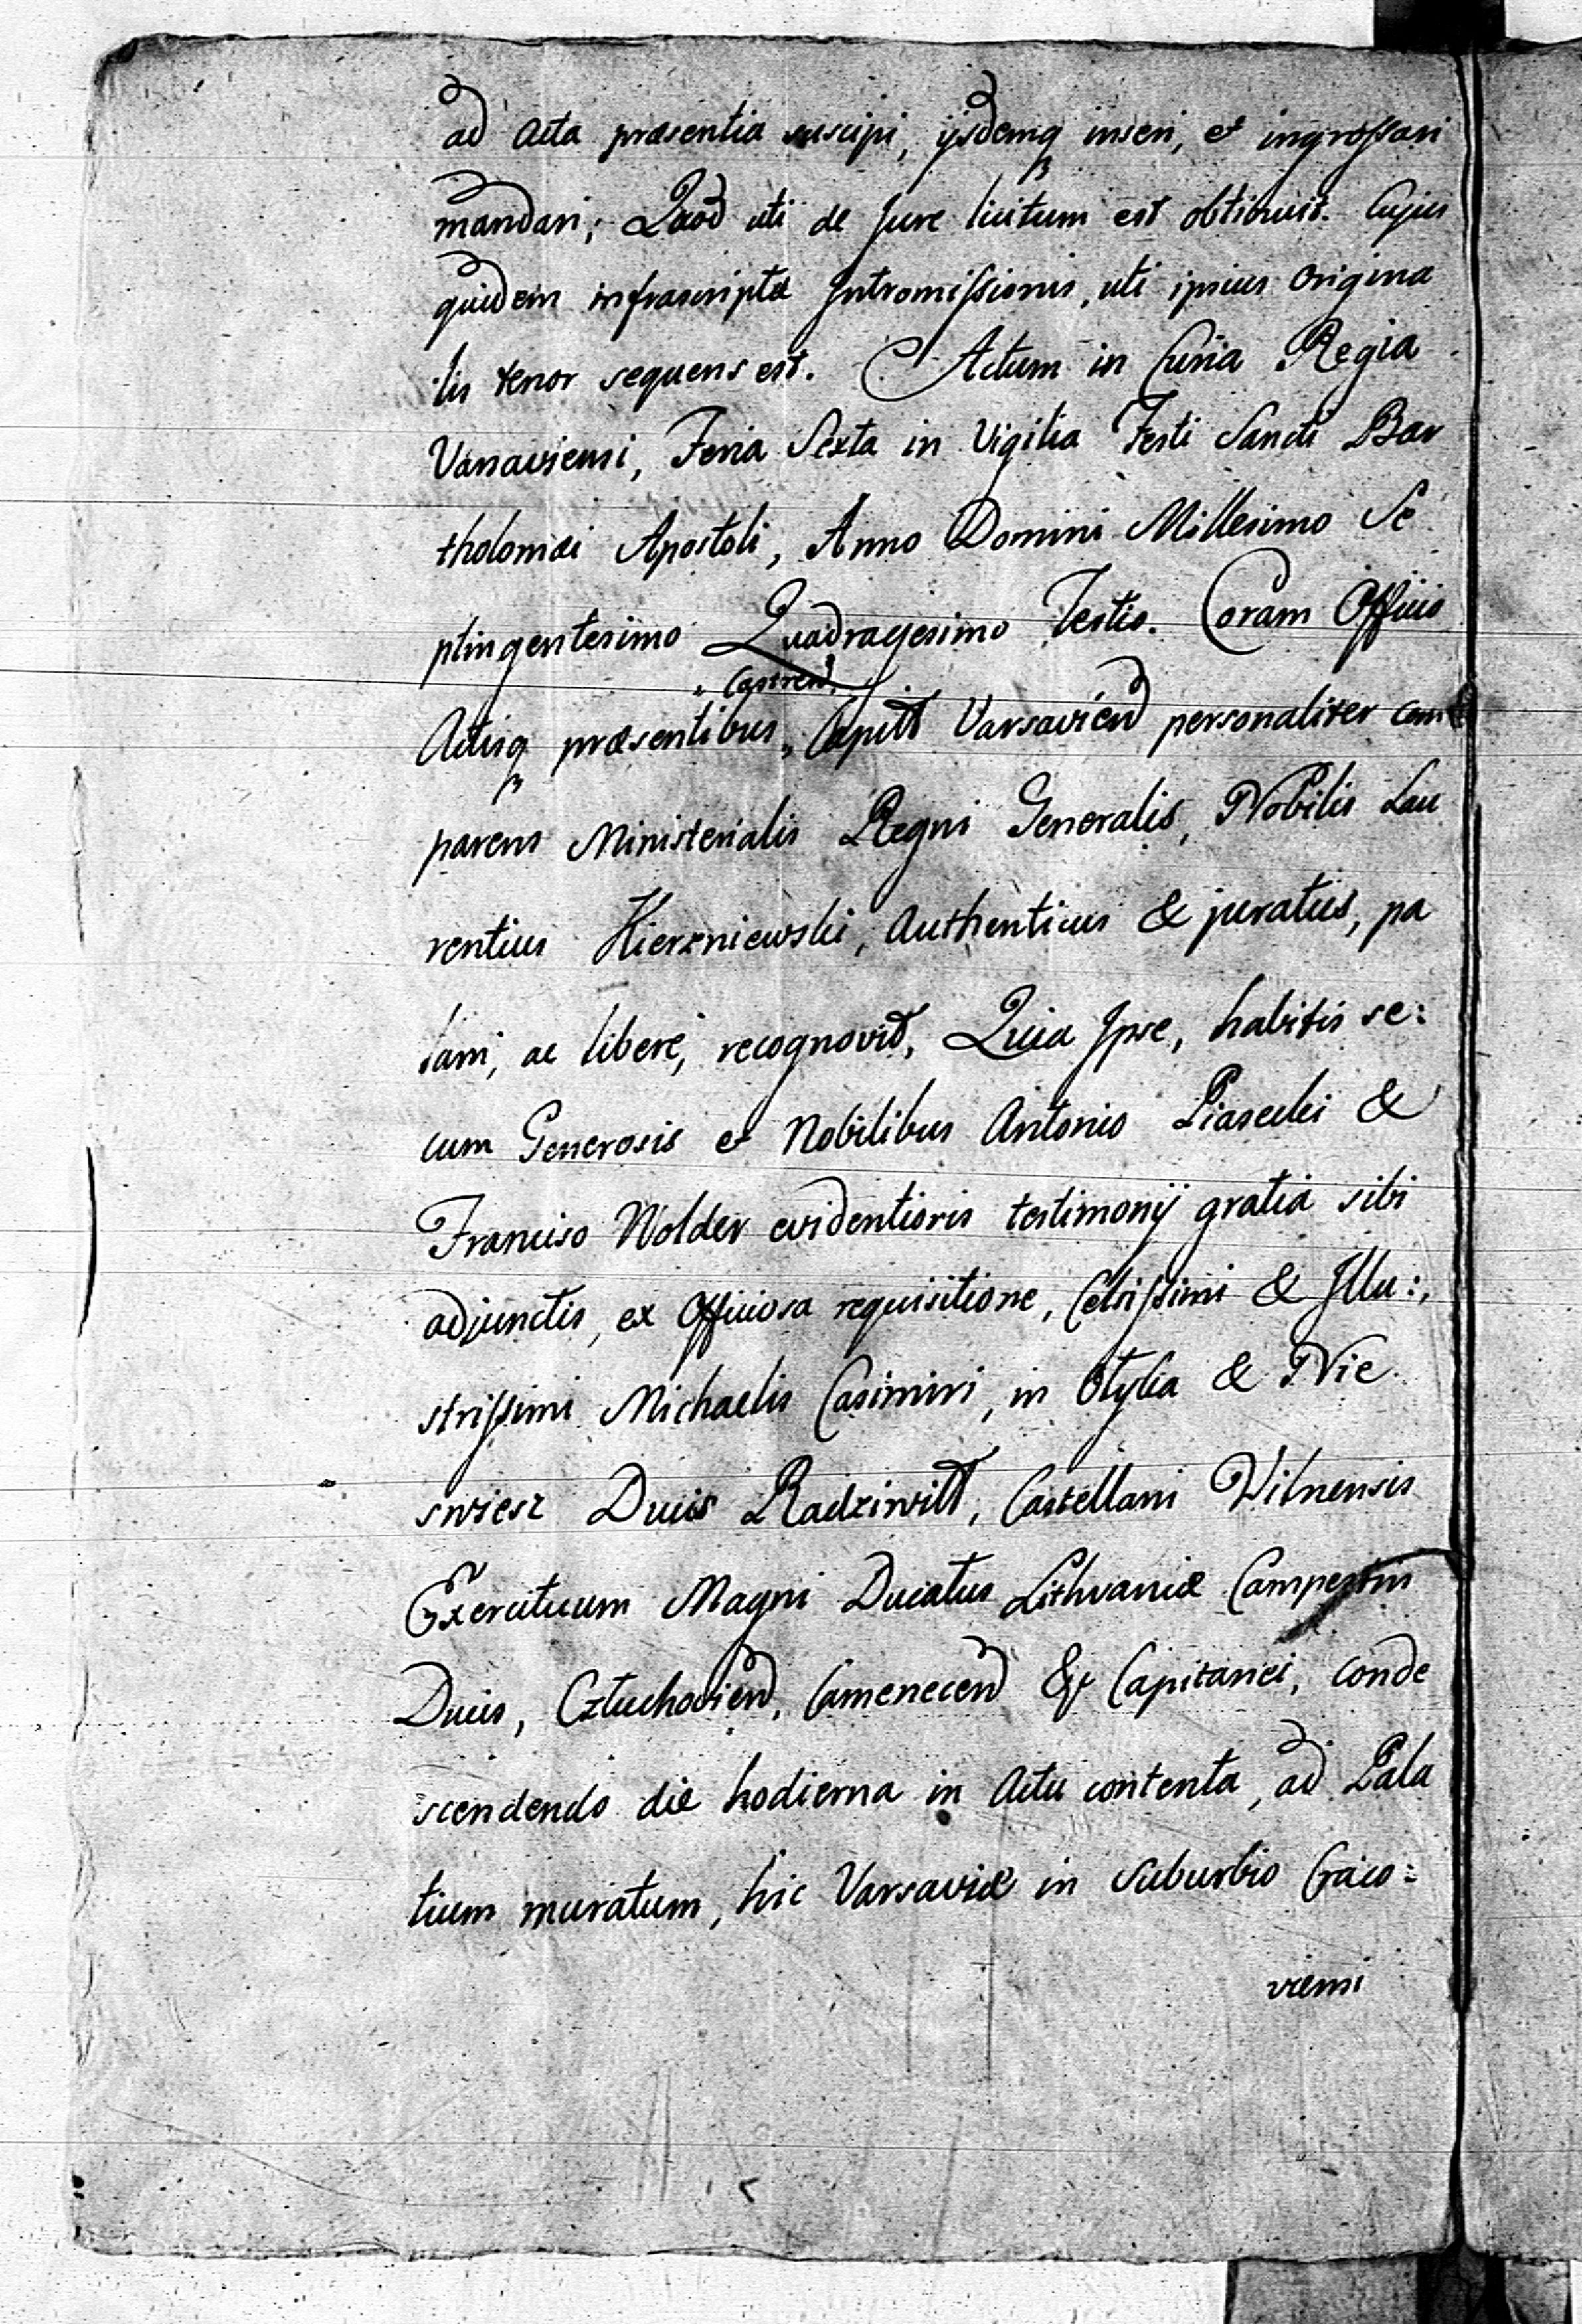 ad Acta præsentia suscipi, ijsdemq inseri, et ingrossari
mandari; Quod uti de Jure licitum est obtinuit. Cujus
quidem infrascriptæ Intromissionis, uti ipsius Origina
lis tenor sequens est. Actum in Curia Regia
Varsaviensi, Feria Sexta in Vigilia Festi Sancti Bar
tholomæi Apostoli, Anno Domini Millesimo Se
ptingentesimo Quadragesimo Tertio. Coram Officio
Castren
Actisq præsentibus, Capitt Varsavien personaliter com
parens Ministerialis Regni Generalis, Nobilis Lau
rentius Kierzniewski, Authenticus & juratus, pa
lam, ac libere, recognovit, Quia Ipse, habitis se:
cum Generosis et Nobilibus Antonio Piasecki &
Francisco Wolder evidentioris testimonij gratia sibi
adjunctis, ex Officiosa requisitione, Celsissimi & Illu:
strissimi Michaelis Casimiri, in Otyka & Nie
swiesz Ducis Radziwitt, Castellani Vilnensis
Exercituum Magni Ducatus Lithvaniæ Campestris
Ducis, Cztuchovien, Camenecen & Capitanei, conde
scendendo die hodierna in Actu contenta, ad Pala
tium muratum, hic Varsaviæ in Suburbio Craco:
viensi